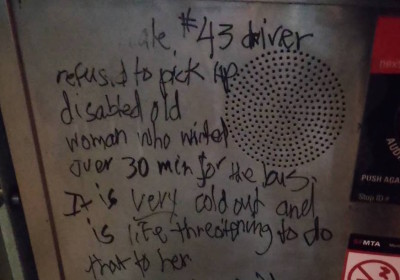 #43 driver
refused to pick up
disabled old
woman who waited
over 30 min for the bus.
It is very cold out and
is life-threatening to do
that to her
PUSH AGA
Stop ID #
MTA